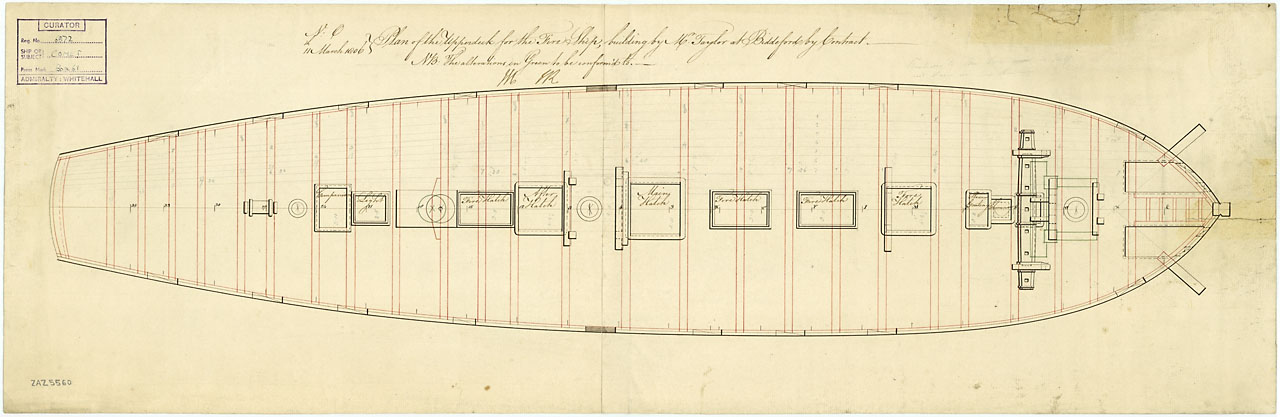 CURATOR
Reg. No. 6572
SHIP OR SUBJECT COMET
Press Mark
ADMIRALTY, WHITEHALL
N. O.
11 March 1806 } Plan of the Upperdeck for the Fire Ship, building by Mr Taylor at Biddeford by Contract.
NB The alterations in Green to be conform'd to.
Companion
Light
Fire Hatch
After Hatch
Main Hatch
Fire Hatch
Fire Hatch
Fore Hatch
ZAZ5560